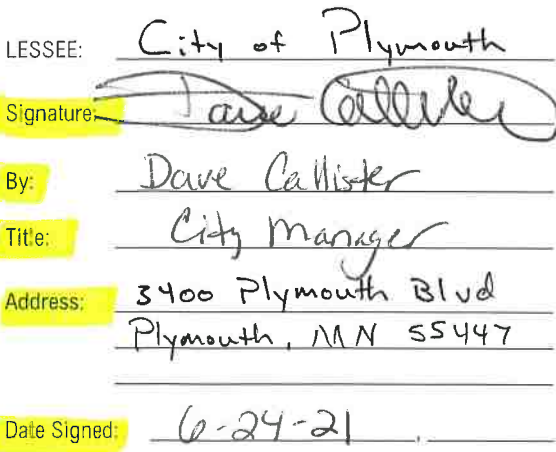 LESSEE: City of Plymouth
Signature: Dave Callister
By: Dave Callister
Title: City Manager
Address: 3400 Plymouth Blvd
Plymouth, MN 55447
Date Signed: 6-24-21